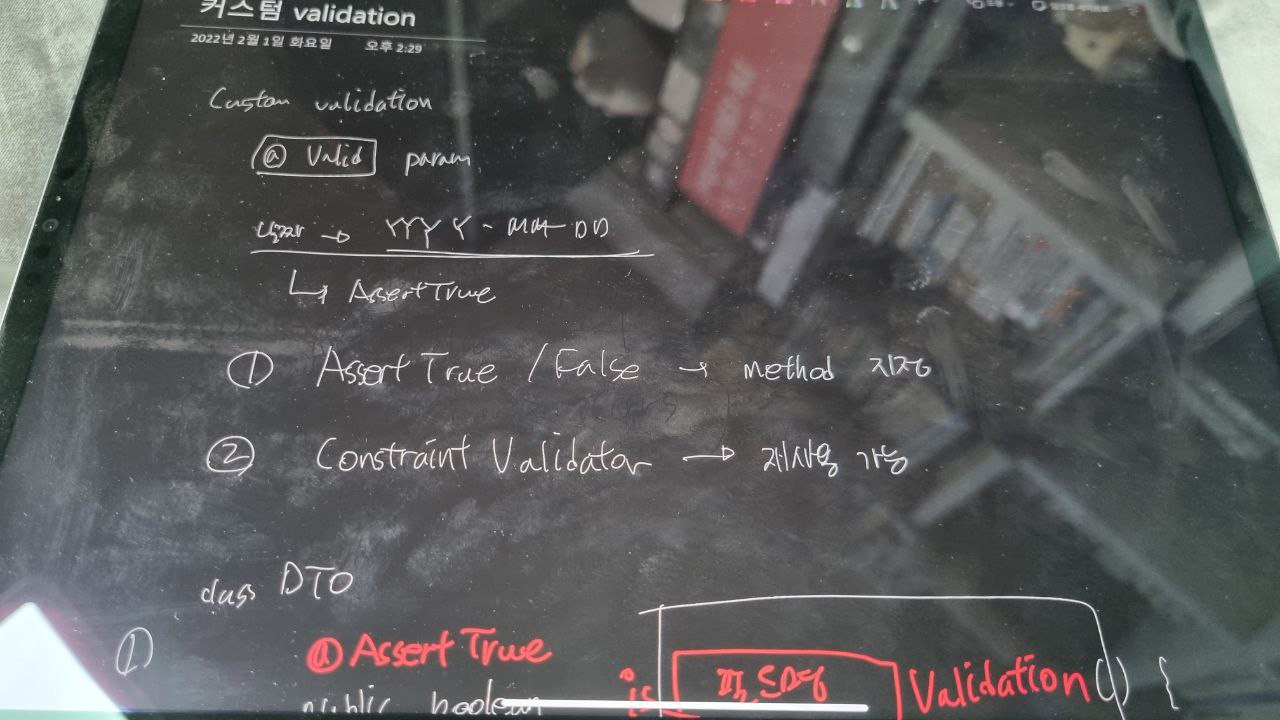 커스텀 validation
2022년 2월 1일 화요일 오후 2:29
Custom validation
@ Valid param
날짜 → YYYY-MM-DD
↳ AssertTrue
① Assert True / False → method 지정
② Constraint Validator → 재사용 가능
class DTO
① @ Assert True
public boolean is 필드명 Validation() {